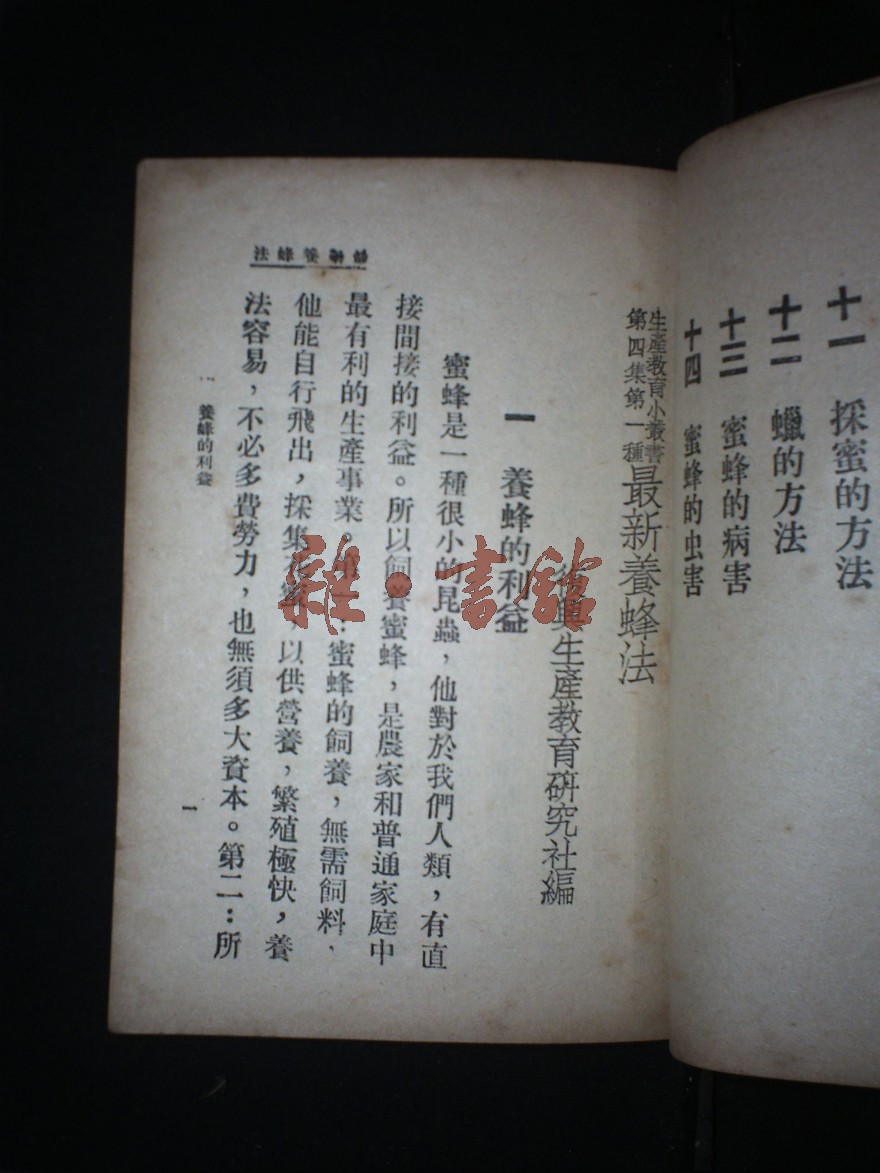 十一　採蜜的方法
十二　蠟的方法
十三　蜜蜂的病害
十四　蜜蜂的虫害
生產教育小叢書
第四集第一種
最新養蜂法
復興生產教育研究社編
一　養蜂的利益
蜜蜂是一種很小的昆蟲，他對於我們人類，有直
接間接的利益。所以飼養蜜蜂，是農家和普通家庭中
最有利的生產事業。第一：蜜蜂的飼養，無需飼料，
他能自行飛出，採集花蜜，以供營養，繁殖極快，養
法容易，不必多費勞力，也無須多大資本。第二：所
養蜂法
養蜂的利益
一
雜·書館